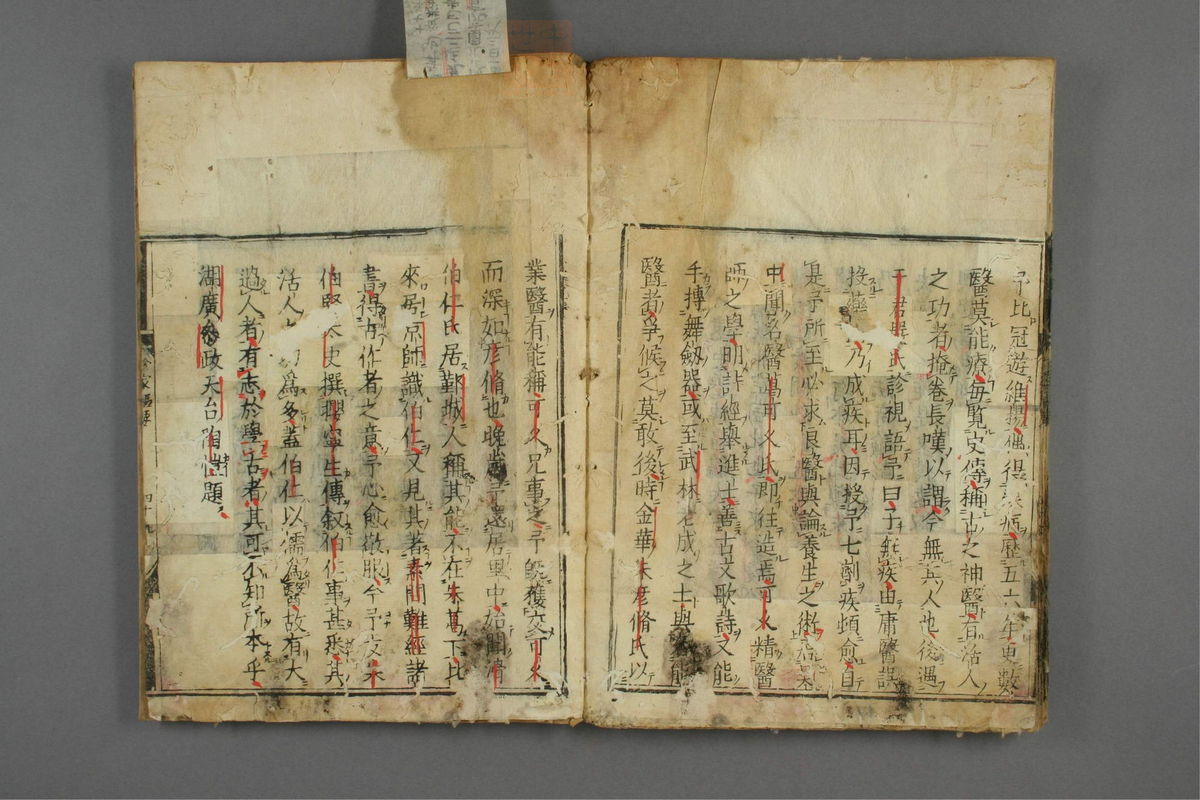 予比冠遊維揚偶得 病歷五六年更數
醫莫能療每覧史傳稱古之神醫有活人
之功者掩卷長嘆以謂今無其人也後遇
于君 氏診視語予曰子無疾由庸醫誤
投 乃成疾耳因授予七劑疾頓愈自
是予所至必求良醫與論養生之術
中聞名醫葛可久氏即往造焉可久精醫
師之學明詩經舉進士善古文歌詩又能
手搏舞劔器或至武林老成之士與 能
醫者爭候之莫敢後時金華朱彦脩氏以
業醫有能稱可久兄事之予既獲交可久
而深如彦脩也晚歲予還居里中始聞滑
伯仁氏居鄞城人稱其能不在朱葛下比
來居京師識伯仁又見其著素問難經諸
書得古作者之意予心愈敬服今予友朱
伯賢太史撰攖寧生傳叙伯仁事甚悉其
活人 功為多蓋伯仁以儒為醫故有大
過人者有志於學古者其可不知所本乎
湖廣叅政天台陶 題